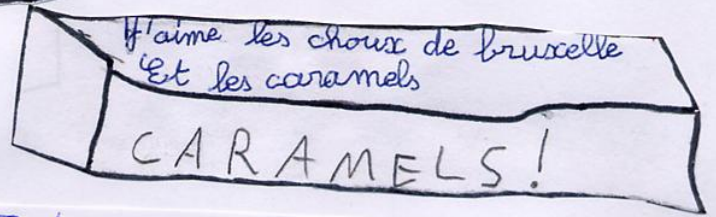 J'aime les choux de bruxelle
Et les caramels
CARAMELS!